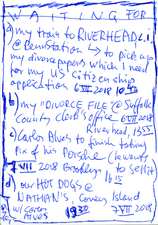 WAITING FOR
a) my train to RIVERHEAD L.I.
@ Penn Station → to pick up
my divorce papers which I need
for my US citizenship
application 6 VII 2018 10
b) my "DIVORCE FILE @ Suffolk
County clerk's office 6 VII 2018
Riverhead, 13 55
c) Carlos Alves to finish taking
pix of his PORSCHE (he wants
7 VII 2018 Brooklyn to sell it
d) our HOT DOGS @
NATHAN'S, Coney Island
w/ Carlos Alves 19 30 7 VII 2018